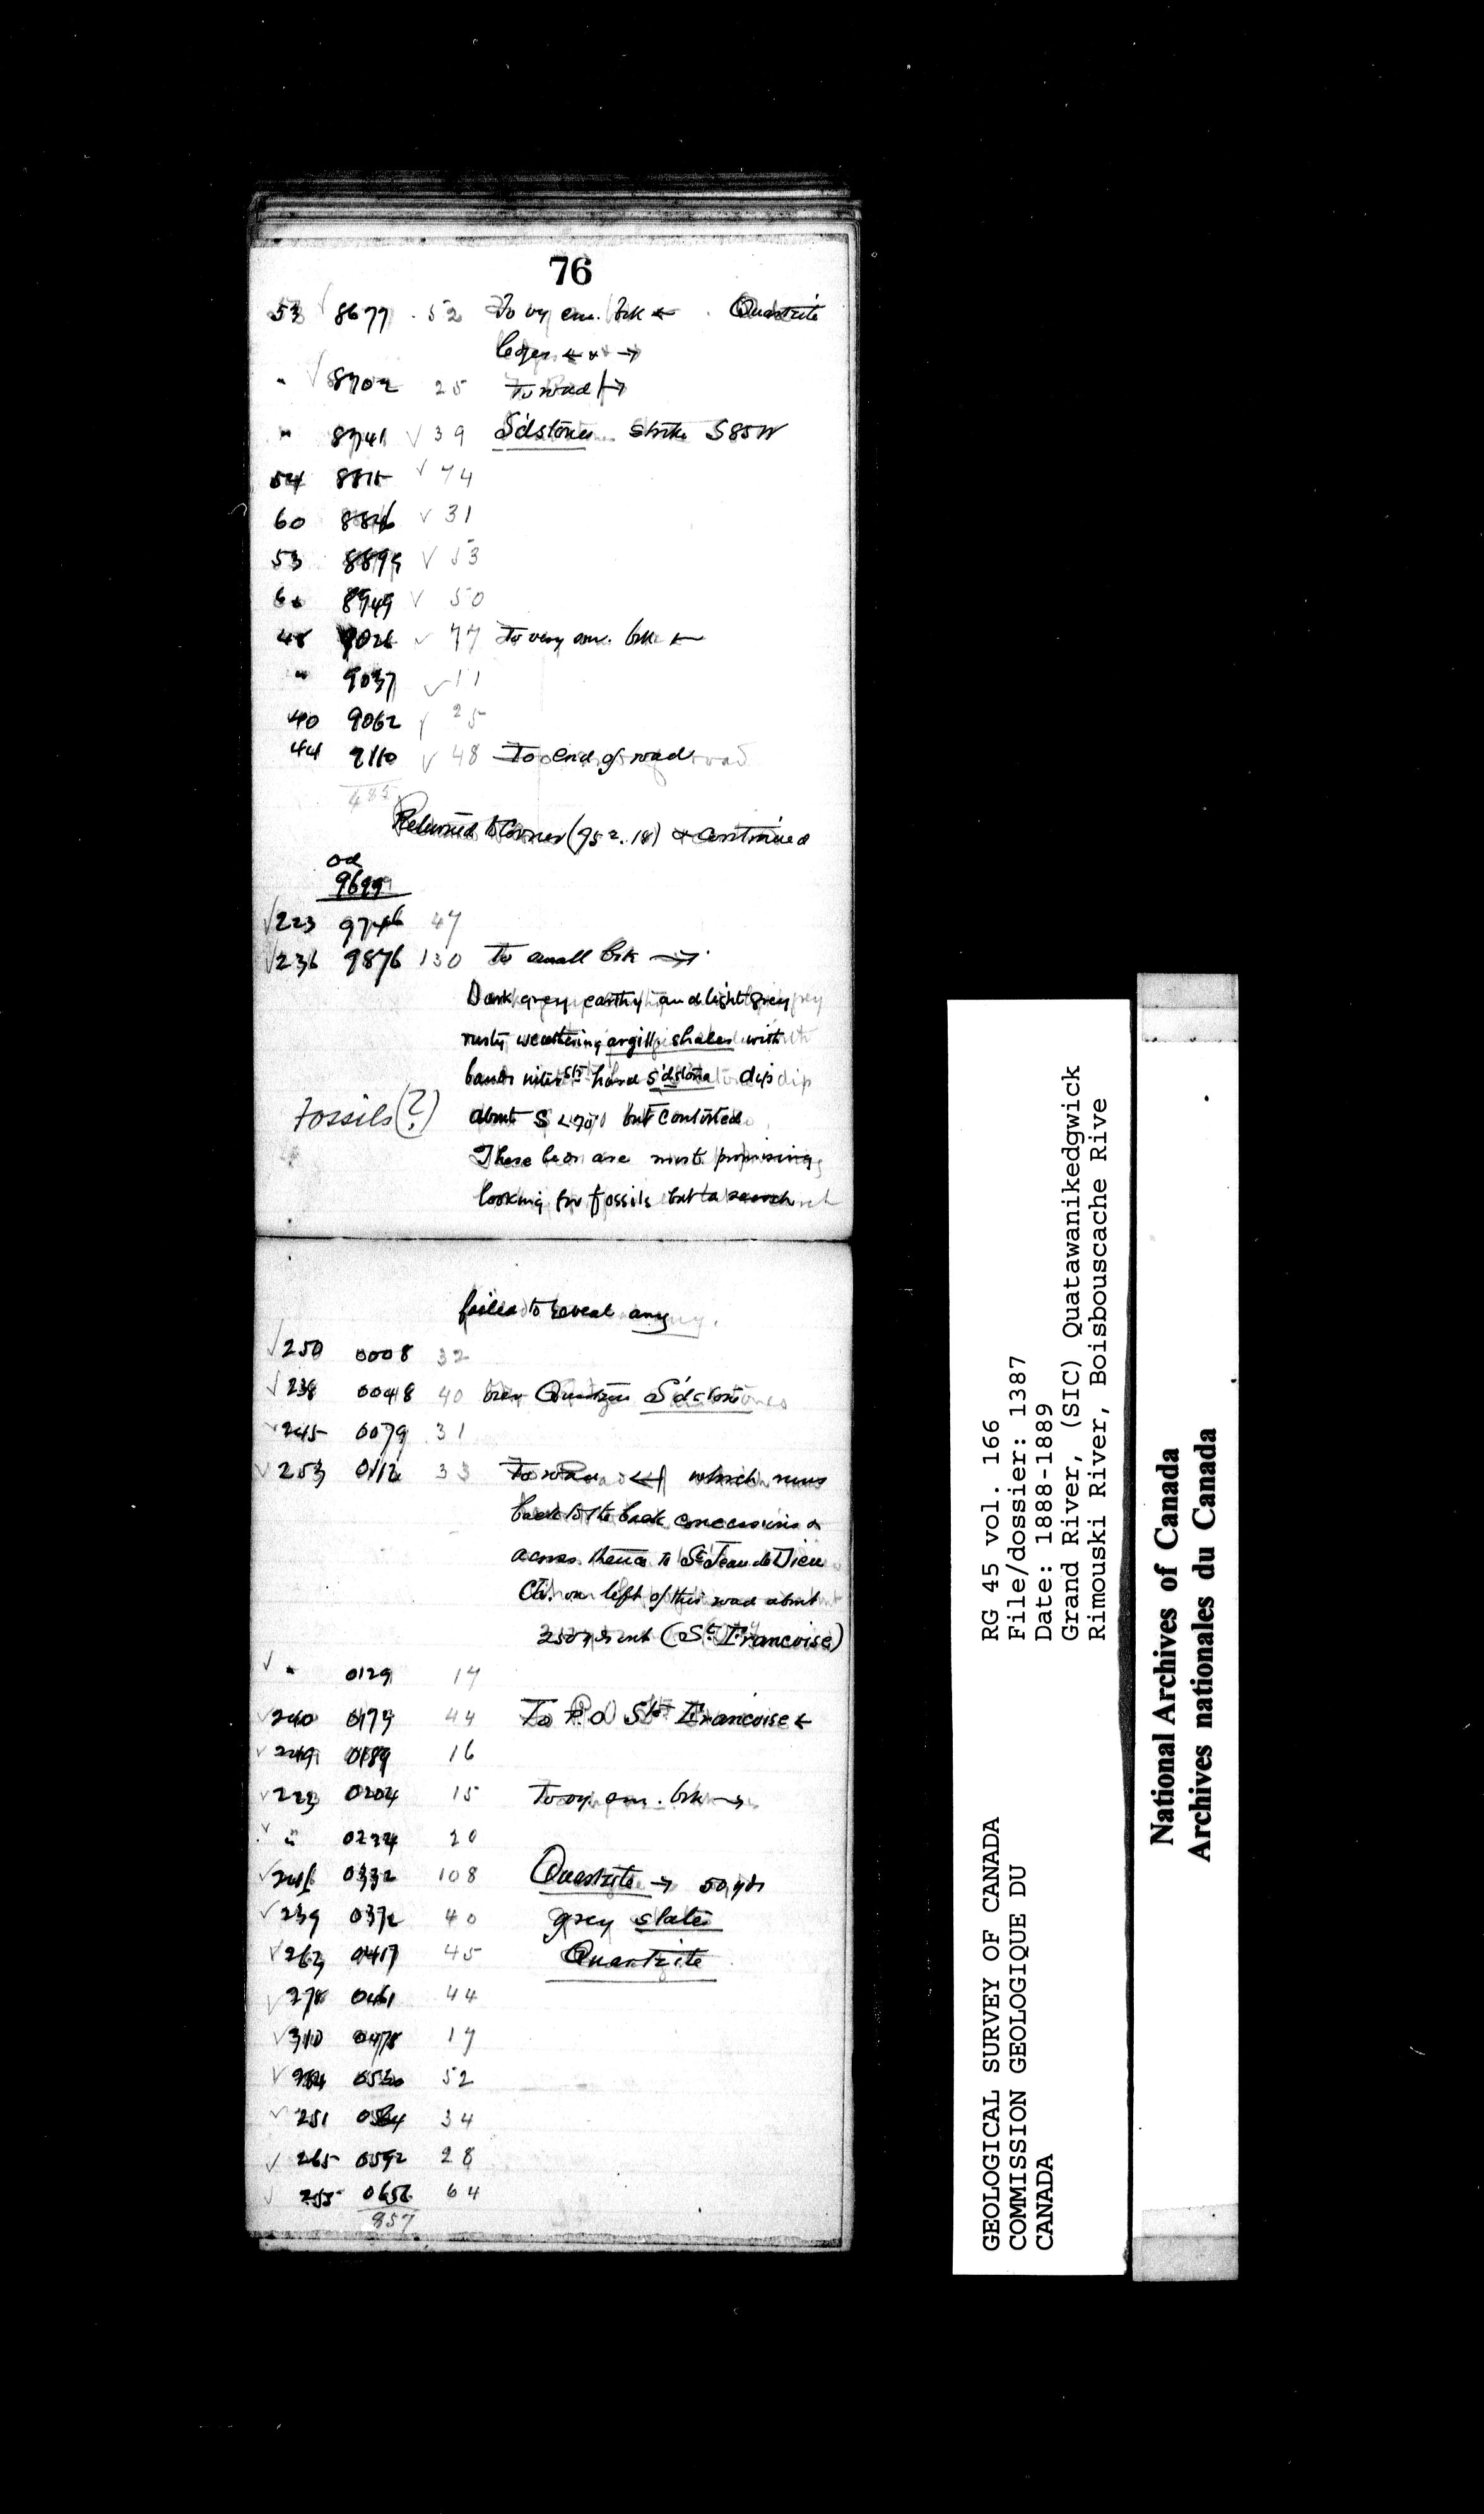 76
53 √ 8677 . 52 To vy sm. brk ← . Quartzite
ledges ← & →
" √ 8702 25 To road |→
" 8741 √ 39 S'dstones strike S85W
54 8815 √ 74
60 8846 √ 31
53 8899 √ 53
60 8949 √ 50
48 9026 √ 77 To very sm. brk ←
" 9037 √ 11
40 9062 √ 25
44 9110 √ 48 To end of road
485
Returned to Corner (95 2.18) & continued
od
9699
√223 9746 47
√236 9876 130 To small brk →
Dark grey earthy and light grey
rusty weathering argill. shales with
bands hard s'dstone dip
Fossils (?) about S <70 but contorted
These beds are most promising
looking for fossils but a search
failed to reveal any.
√250 0008 32
√238 0048 40 Quartzose S'dstones
√245 0079 31
√253 0112 33 To road ←| which runs
back to the back concessions &
across thence to St Jean de Dieu
Ch. on left of this road about
250 yds (Ste Francoise)
√ " 0129 17
√240 0179 44 To P.O Ste Francoise ←
√249 0189 16
√223 0204 15 To vy. sm. brk →
√ " 0224 20
√246 0332 108 Quartzite → 50 yds
√239 0372 40 grey slates
√263 0417 45 Quartzite
√278 0461 44
√310 0478 17
√ 0530 52
√251 0564 34
√265 0592 28
√255 0656 64
957
GEOLOGICAL SURVEY OF CANADA
COMMISSION GEOLOGIQUE DU
CANADA
RG 45 vol. 166
File/dossier: 1387
Date: 1888-1889
Grand River, (SIC) Quatawanikedgwick
Rimouski River, Boisbouscache Rive
National Archives of Canada
Archives nationales du Canada